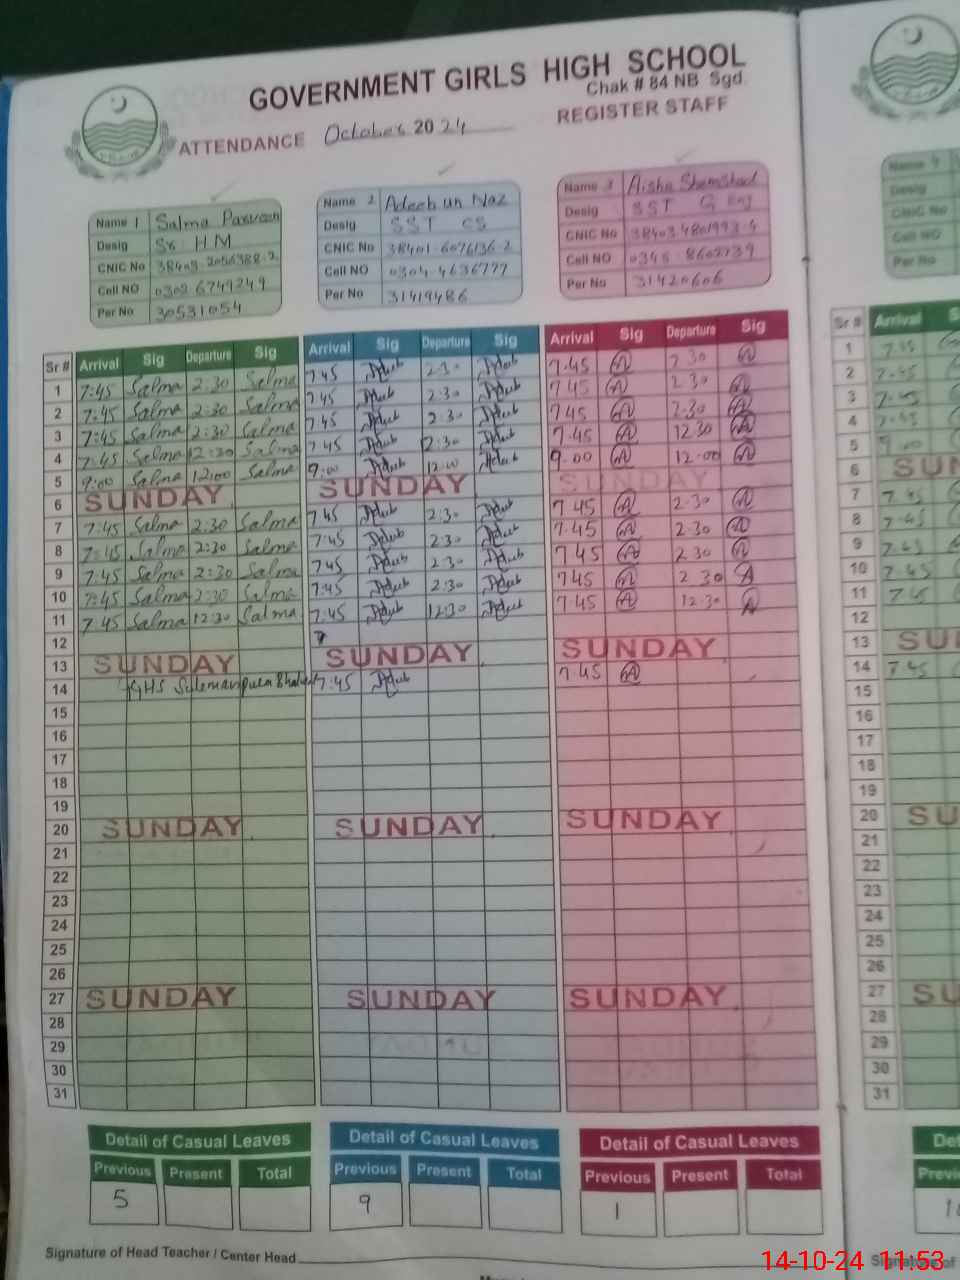 GOVERNMENT GIRLS HIGH SCHOOL
Chak # 84 NB Sgd.
ATTENDANCE October 2024 REGISTER STAFF
Name 1 Salma Parveen
Desig Sr HM
CNIC No 38403-2056388-2
Cell NO 0302 6749249
Per No 30531054
Name 2 Adeeb un Naz
Desig SST CS
CNIC No 38401-6076136-2
Cell NO 0304 4636777
Per No 31419486
Name 3 Aisha Shamshad
Desig SST
CNIC No 38403-4801993-4
Cell NO 0345 8602739
Per No 31420606
Sr # Arrival Sig Departure Sig Arrival Sig Departure Sig Arrival Sig Departure Sig
1 7:45 Salma 2:30 Salma 7:45 Adeeb 2:30 Adeeb 7:45 2:30
2 7:45 Salma 2:30 Salma 7:45 Adeeb 2:30 Adeeb 7:45 2:30
3 7:45 Salma 2:30 Salma 7:45 Adeeb 2:30 Adeeb 7:45 2:30
4 7:45 Salma 12:30 Salma 7:45 Adeeb 12:30 Adeeb 7:45 12:30
5 9:00 Salma 12:00 Salma 9:00 Adeeb 12:00 Adeeb 9:00 12:00
6 SUNDAY SUNDAY SUNDAY
7 7:45 Salma 2:30 Salma 7:45 Adeeb 2:30 Adeeb 7:45 2:30
8 7:45 Salma 2:30 Salma 7:45 Adeeb 2:30 Adeeb 7:45 2:30
9 7:45 Salma 2:30 Salma 7:45 Adeeb 2:30 Adeeb 7:45 2:30
10 7:45 Salma 2:30 Salma 7:45 Adeeb 2:30 Adeeb 7:45 2:30
11 7:45 Salma 12:30 Salma 7:45 Adeeb 12:30 Adeeb 7:45 12:30
12 7
13 SUNDAY SUNDAY SUNDAY
14 GHS 7:45 Adeeb 7:45
15
16
17
18
19
20 SUNDAY SUNDAY SUNDAY
21
22
23
24
25
26
27 SUNDAY SUNDAY SUNDAY
28
29
30
31
Detail of Casual Leaves Detail of Casual Leaves Detail of Casual Leaves
Previous Present Total Previous Present Total Previous Present Total
5 9 1
Signature of Head Teacher / Center Head
Name
Desig
CNIC No
Cell NO
Per No
Sr # Arrival
1 7:45
2 7:45
3 7:45
4 7:45
5 9:00
6 SUN
7 7:45
8 7:45
9 7:45
10 7:45
11 7:45
12
13 SUN
14 7:45
15
16
17
18
19
20 SU
21
22
23
24
25
26
27 SU
28
29
30
31
14-10-24 11:53